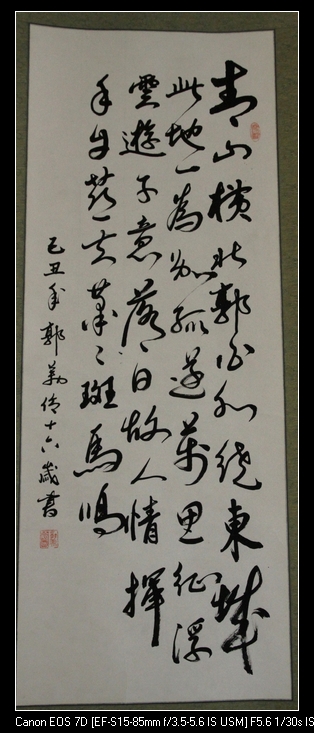 青山横北郭白水繞東城
此地一為別孤蓬萬里征浮
雲遊子意落日故人情揮
手自茲去蕭々斑馬鳴
己丑年郭十六歲書
Canon EOS 7D [EF-S15-85mm f/3.5-5.6 IS USM] F5.6 1/30s IS